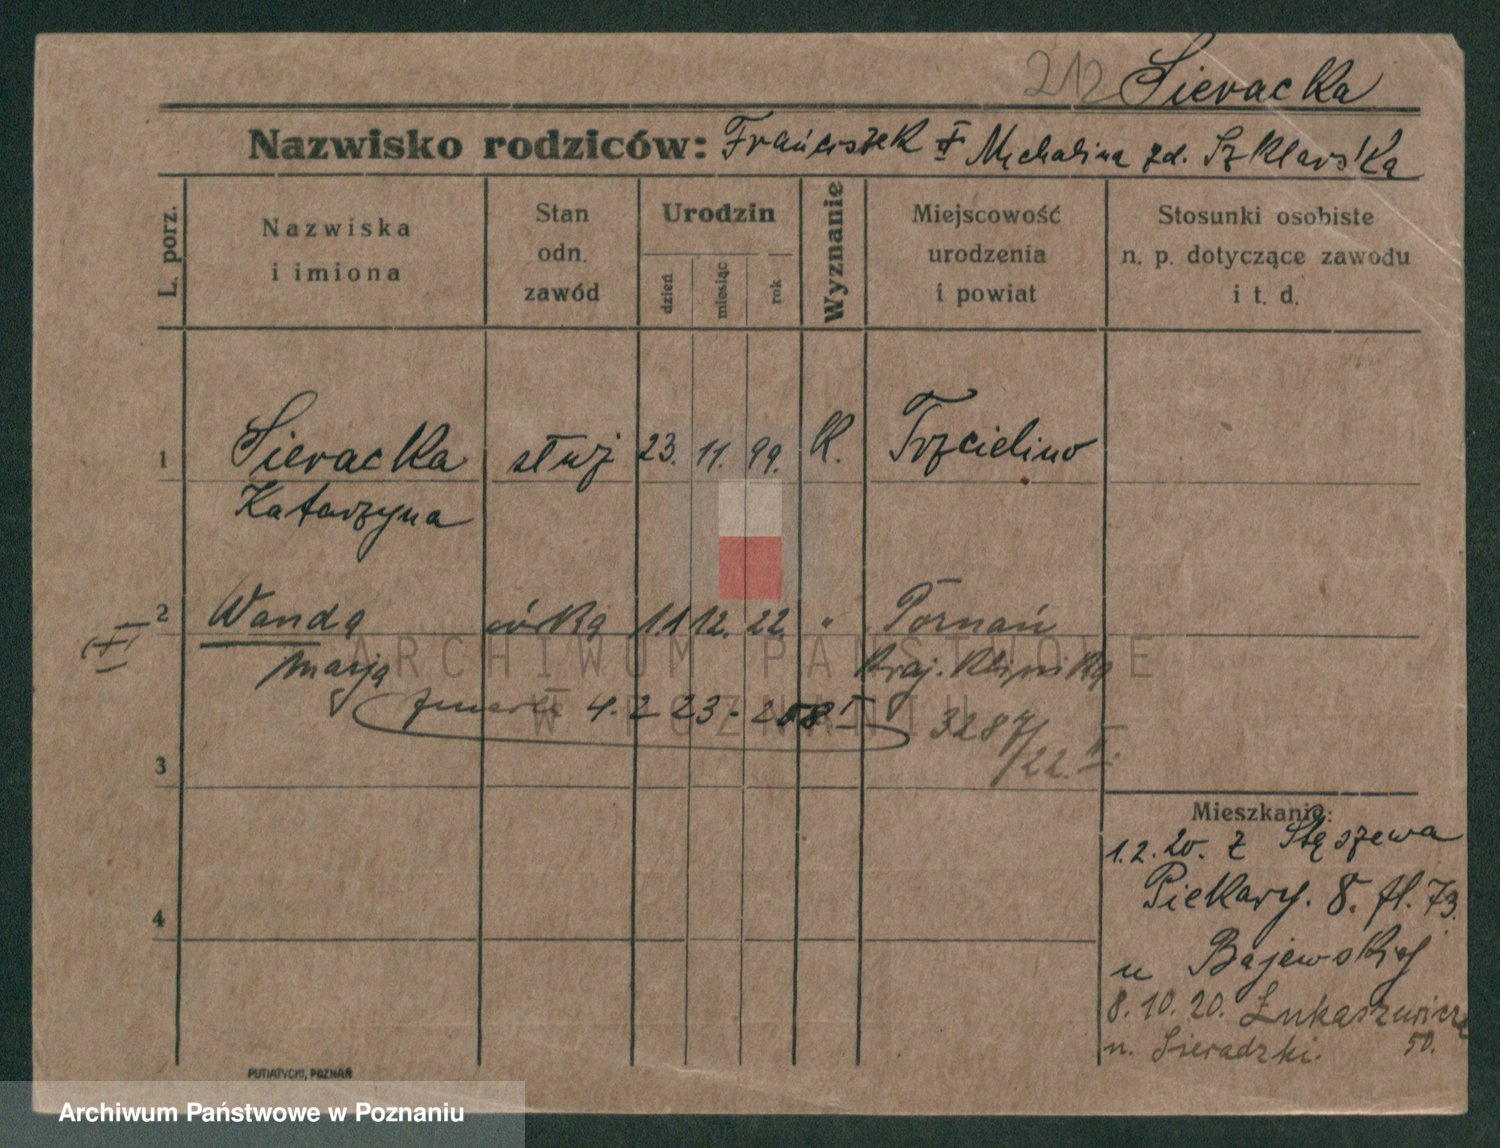 212 Sieracka
Nazwisko rodziców: Franciszek i Michalina zd. Szklarska
L. porz.
Nazwiska
i imiona
Stan
odn.
zawód
Urodzin
dzień
miesiąc
rok
Wyznanie
Miejscowość
urodzenia
i powiat
Stosunki osobiste
n. p. dotyczące zawodu
i t. d.
1 Sieracka służ 23. 11. 99. K. Trzcielino
Katarzyna
2 Wanda córka 11 12. 22. " Poznań
Marja Kraj. Klinika
zmarła 4. 2 23 - 258 I
3287/22. II.
3
4
Mieszkanie:
1. 2. 20. z Stęszewa
Piekary. 8. fl. 73.
u Bajewskiej
8. 10. 20. Łukaszewicza 50.
u. Sieradzki.
PUTIATYCKI, POZNAŃ
ARCHIWUM PAŃSTWOWE
W POZNANIU
Archiwum Państwowe w Poznaniu